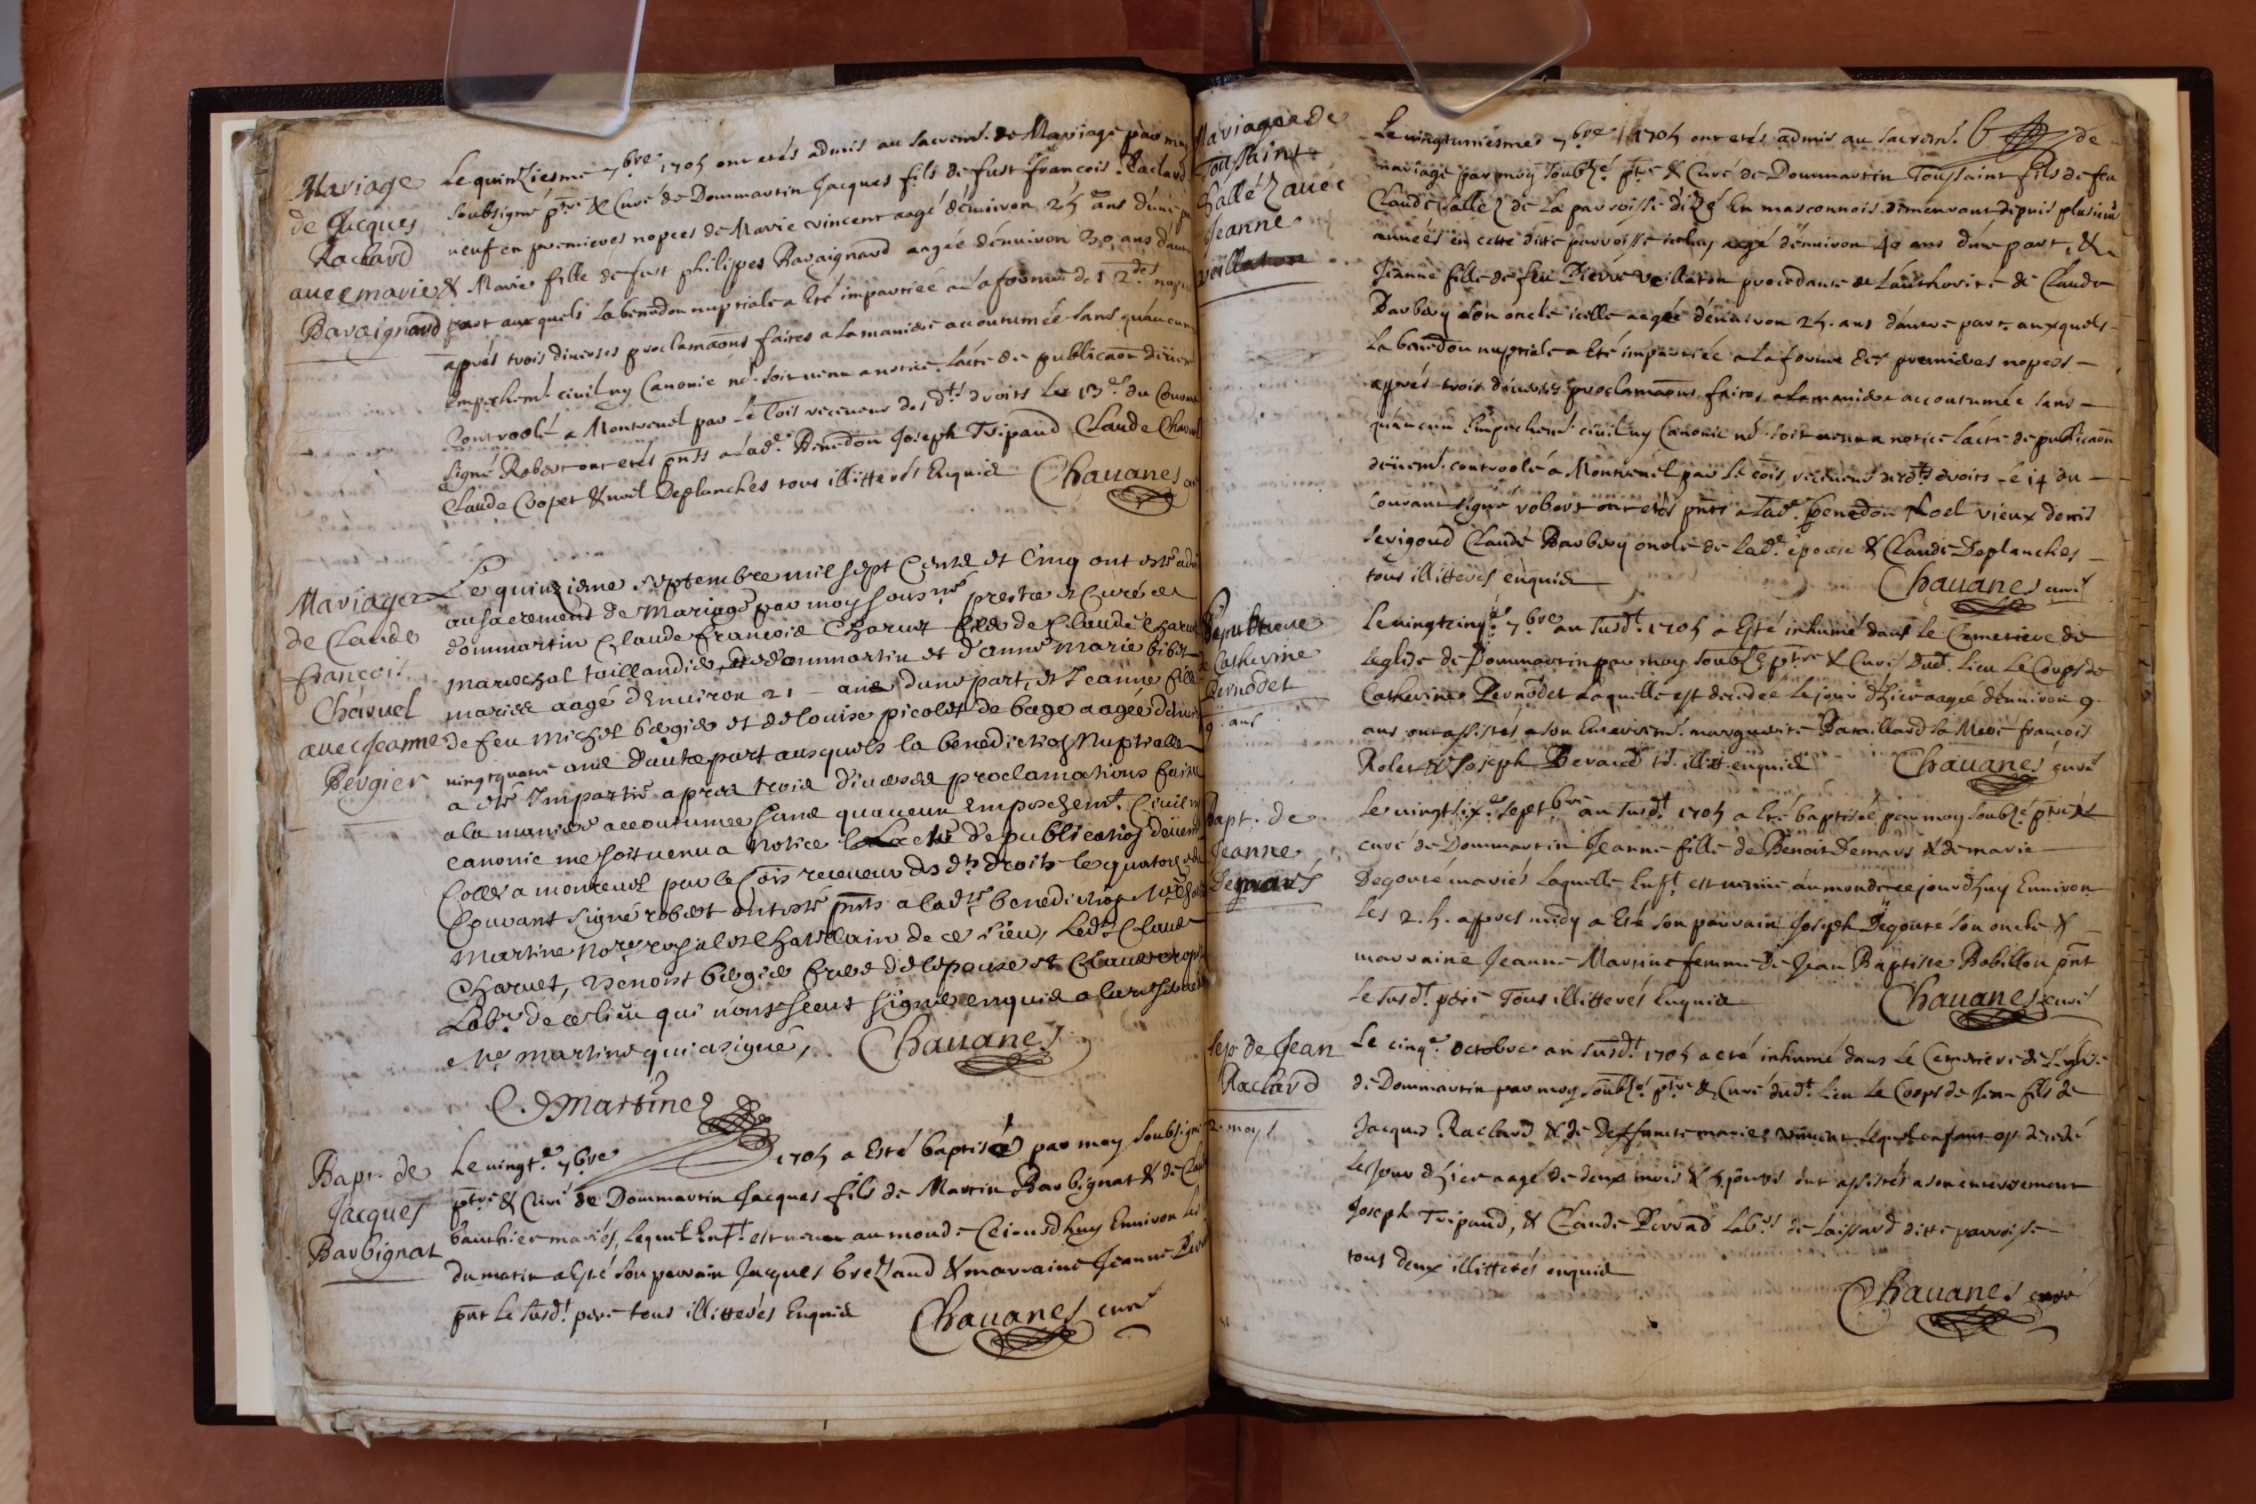 Mariage
de Jacques
Raclard
avec marie
Baraignard
Le quinziesme 7bre 1705 ont etés admis au sacremt. de Mariage par moy
soubsigné ptre & Curé de Dommartin Jacques fils de fust francois Raclard
neuf en premieres nopces de Marie vincent aagé dénviron 25 ans dune
& Marie fille de fust philippes Baraignard aagée dénviron 30 ans dautre
part auxquels la benedon nuptiale a Eté impartiée a la forme des 2des nopces
aprés trois diverses proclamaons faites a la maniere accoutumée sans quaucun
Empechemt civil ny Canonic né soit venu a notice. lácte de publicaon
Controolé a Montrevel par Le Cois receveur des dts droits Le 13e du Courant
signé Robert ont etés pnts a lade. Benedon Joseph Tripaud Claude
Claude Cropet & noël Deplanches tous illitterés Enquid Chauanes
Mariage
de Claude
françois
Charuel
avec Jeanne
Bergier
Le quinzieme septembre mil sept Cents et Cinq ont esté
au sacrement de Mariage par moy sousné prestre et Curé de
dommartin Claude francois Charuet fils de Claude Charuet
mareschal taillandier de dommartin et d'anne marie
mariee aagé dEnviron 21 ans dune part, et Jeanne fille
de feu michel bergier et de louise picolet de bage aagée
vingtquatre ans d'autre part ausquels la benediction Nuptialle
a esté Impartie apres trois diverses proclamations faites
a la maniere accoutumee sans quaucun Empeschemt. Civil
canonic ne soit venu a notice Lacte de publication
a montrevel par le Cois receveur des dts droits le quatorze
Courant signé robert ont esté pnts a ladte benediction
martine Nore. royal et Chatelain de ce lieu, Ledt Claude
Charuet, Benoist bergier frere de lepouse et Claude
Labr. de ce lieu qui n'ont sceut signer enquis
Me martine qui a signé, Chauanes
C. Martine
Bapt. de
Jacques
Barbignat
Le vingte. 7bre 1705 a Esté baptisé par moy soubsigné
ptre & Curé de Dommartin Jacques fils de Martin Barbignat & de
bauthier mariés, Lequel Enft. est venu au monde Cejourdhuy Environ
du matin a Eté son parrain Jacques brezand & marraine Jeanne
pnt Le susdt. pere tous illitterés Enquid Chauanes curé
Mariage de
Toussaint
Callez avec
Jeanne
Voillaton
Le vingtuniesme 7bre 1705 ont etés admis au sacremt. de
mariage par moy soubzé. ptre & Curé de Dommartin Toussaint fils de feu
Claude Callez de la parroisse dizé En masconnois demeurant depuis plusieurs
années en cette ditte parroisse iceluy aagé dénviron 40 ans dúne part, &
Jeanne fille de feu Pierre Voillaton procedante de Láuthorité de Claude
Barbery són oncle icelle aagée dénviron 25. ans dáutre part. auxquels
La benedon nuptiale a Eté impartiée a la forme des premieres nopces
aprés trois diverses proclamaons faites a la maniere accoutumée sans
quáucun Empechemt. civil ny Canonic né soit venu a notice lácte de publicaon
deüemt. controolé a Montrevel par Le Cois receveur desdts droits le 14 du
Courant signé robert ont etés pnts a lade. benedon Noel vieux denis
serigoud Claude Barbery oncle de lade. épouse & Claude Deplanches
tous illitterés enquid Chauanes curé
Sepulture
de Catherine
Pernodet
9. ans
Le vingtcinqe. 7bre an susdt. 1705 a Esté inhumé dans le Cemetiere de
Leglise de Dommartin par moy soubzé ptre & Curé dudt. Lieu Le Corps de
Catherine Pernodet Laquelle est decedée Le jour dhier aagée dénviron 9.
ans ont assistés a son Enterremt. marguerite Bataillard sa Mere françois
Rolet & Joseph Beraud td. illitt. enquid Chauanes curé
Bapt. de
Jeanne
Demars
Le vingtsixe. septbre an susdt 1705 a Eté baptisée par moy soubzé ptre &
curé de Dommartin Jeanne fille de Benoit Demars & de marie
Degouté mariés Laquelle Enft. est venüe au monde cejourdhuy Environ
Les 2. h. apres midy a Eté son parrain Joseph Degouté son oncle &
marraine Jeanne Martine femme de Jean Baptiste Bobillon pnt
Le susdt. pere Tous illitterés Enquid Chauanes curé
Sepr de Jean
Raclard
2 moys
Le cinqe. octobre an susdt 1705 a eté inhumé dans Le Cemetiere de Léglise
de Dommartin par moy soubzé. ptre & Curé dudt. Lieu Le Corps de Jean fils de
Jacques Raclard & de Deffuncte marie vincent Lequel enfant est decedé
Le jour dhier aagé de deux mois & jours ont assistés a son enterrement
Joseph Tripaud, & Claude Perrad Labrs. de Laissard ditte parroisse
tous deux illitterés enquid
Chauanes curé